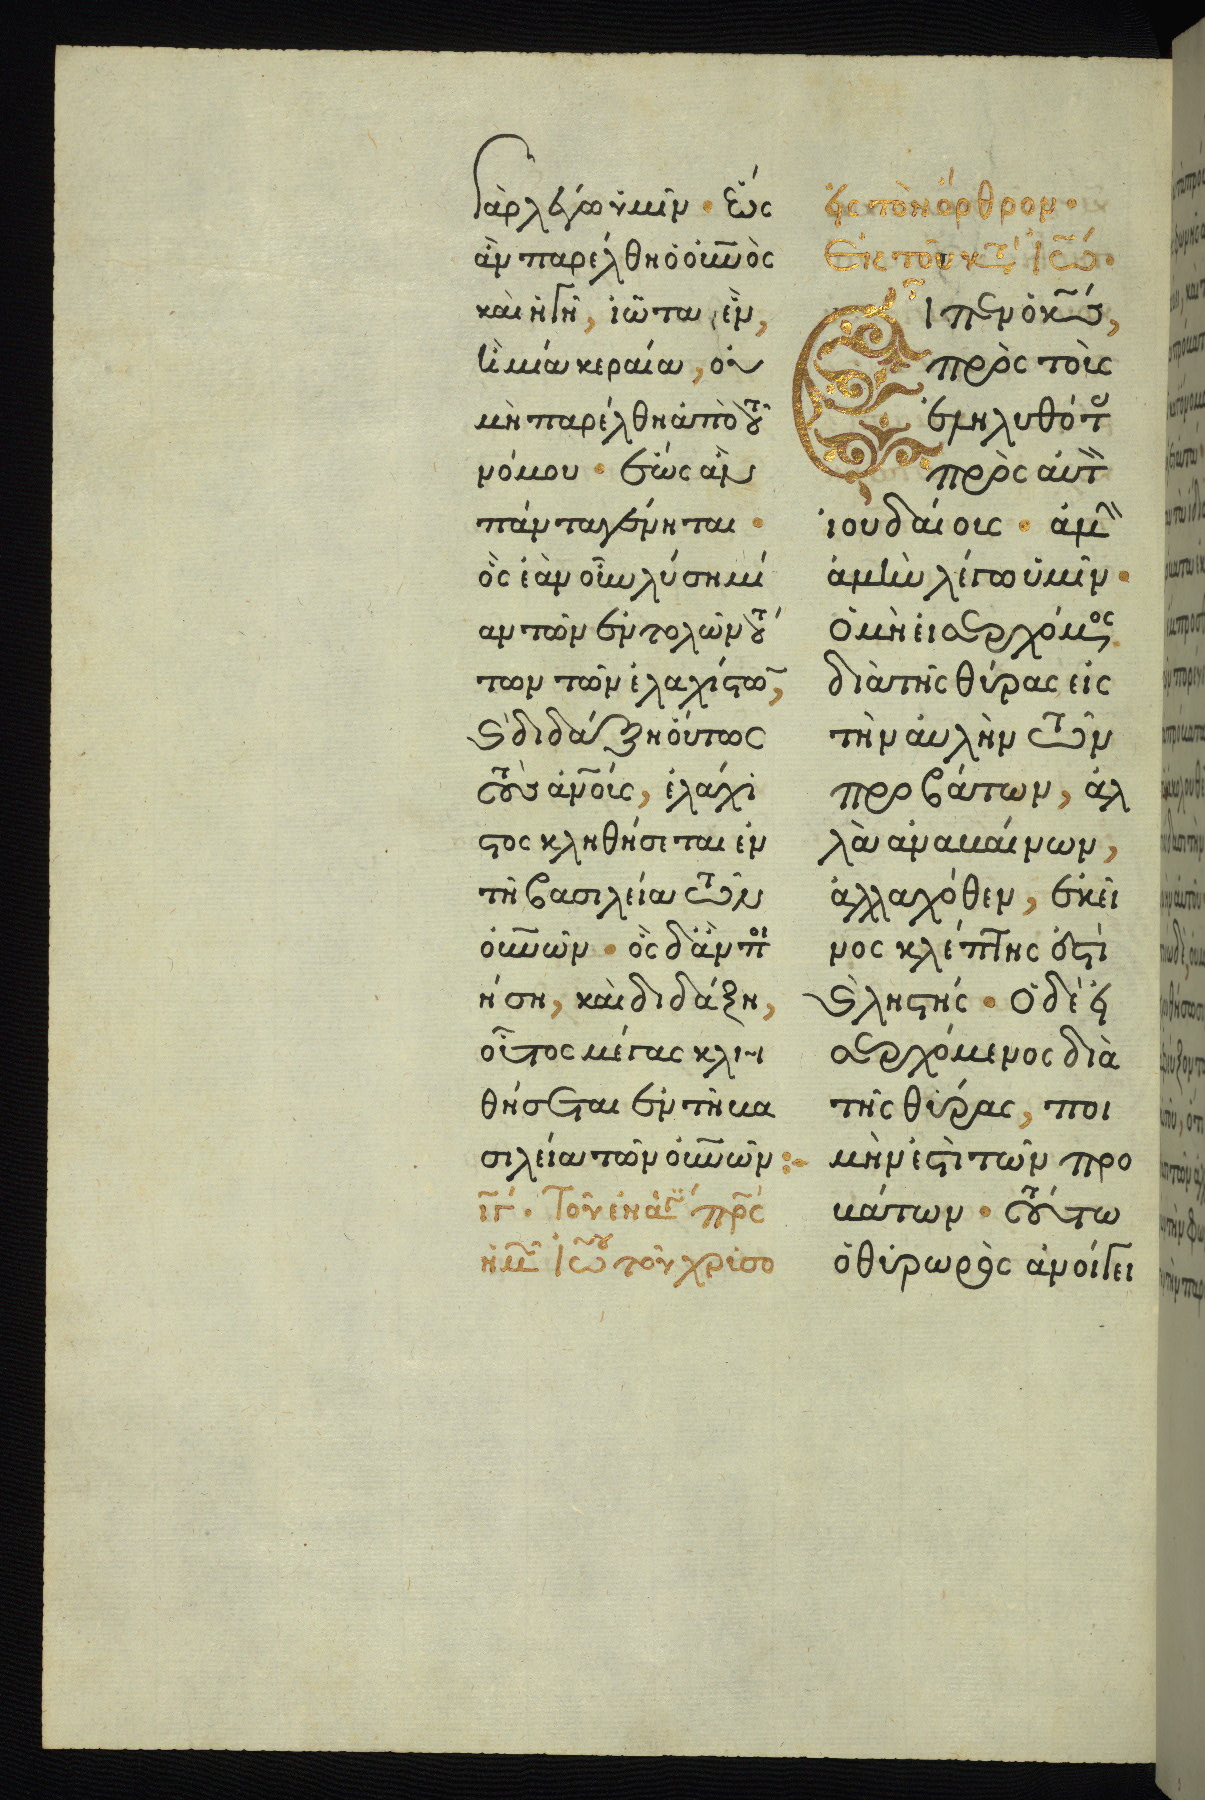 γὰρ λέγω ὑμῖν · ἕως
ἂν παρέλθη ὁ οὐνὸς
καὶ ἡ γῆ, ἰῶτα ἓν,
ἢ μία κεραία, οὐ
μὴ παρέλθη ἀπὸ τοῦ
νόμου · ἕως ἂν
πάντα γένηται ·
ὃς ἐὰν οὖν λύση μί
αν τῶν ἐντολῶν τού
των τῶν ἐλαχίστω,
καὶ διδάξη οὕτως
τοὺς ἀνοις, ἐλάχι
στος κληθήσεται ἐν
τῆ βασιλεία τῶν
οὐνῶν · ὃς δ' ἂν ποι
ήση, καὶ διδάξη,
οὗτος μέγας κλη
θήσεται ἐν τῆ βα
σιλεία τῶν οὐνῶν :-
τοῦ χρυσο
εἰς τὸν ὄρθρον ·
Ἐκ τοῦ κτ Ἰω ·
Εἶπεν ὁ κς,
πρὸς τοὺς
ἐληλυθότ
πρὸς αὐτ
ἰουδαίους · ἀμ
ἀμὴν λέγω ὑμῖν ·
ὁ μὴ εἰσερχόμος
διὰ τῆς θύρας εἰς
τὴν αὐλὴν τῶν
προβάτων, ἀλ
λὰ ἀναβαίνων,
ἀλλαχόθεν, ἐκεῖ
νος κλέπτης ἐστὶ
καὶ ληστής · ὁ δὲ εἰσ
ερχόμενος διὰ
τῆς θύρας, ποι
μήν ἐστι τῶν προ
βάτων · τούτω
ὁ θυρωρὸς ἀνοίγει